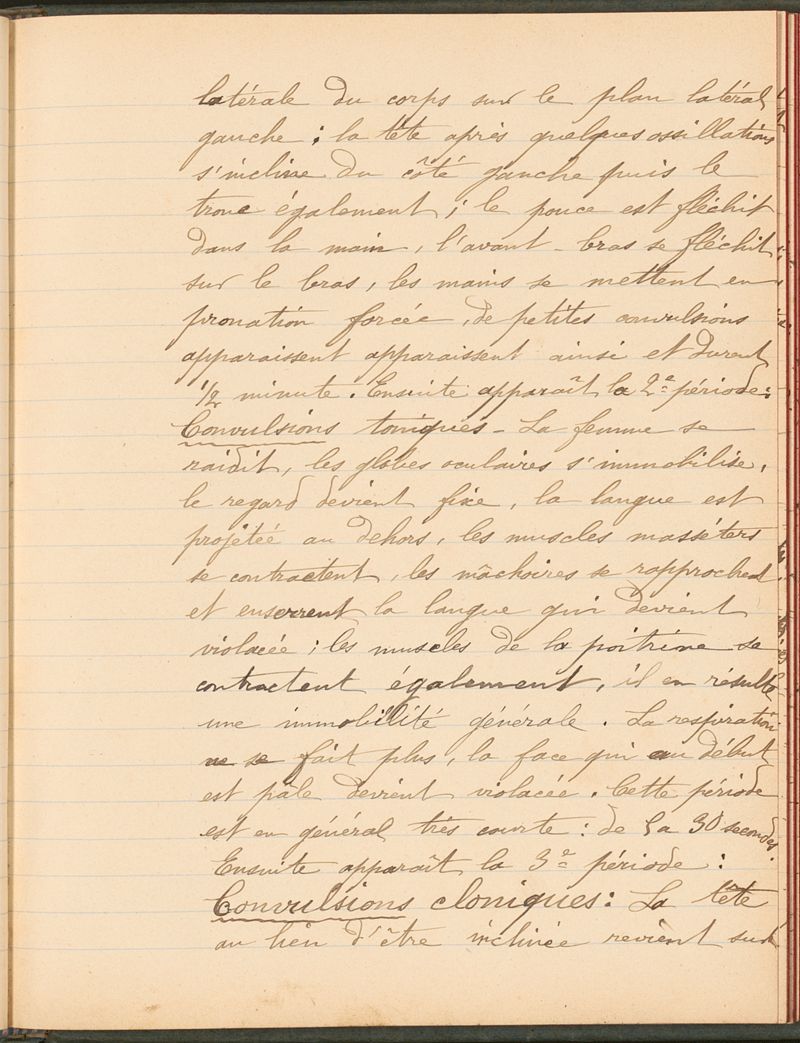 latérale du corps sur le plan latéral
gauche : la tête après quelques ossillations
s'incline du côté gauche puis le
tronc également ; le pouce est fléchit
dans la main, l'avant-bras se fléchit
sur le bras, les mains se mettent en
pronation forcée, de petites convulsions
apparaissent apparaissent ainsi et durent
1/2 minute. Ensuite apparaît la 2e période :
Convulsions toniques - La femme se
raidit, les globes oculaires s'immobilise,
le regard devient fixe, la langue est
projetée au dehors, les muscles masséters
se contractent, les mâchoires se rapprochent
et enserrent la langue qui devient
violacée ; les muscles de la poitrine se
contractent également, il en résulte
une immobilité générale. La respiration
ne se fait plus, la face qui au début
est pâle devient violacée. Cette période
est en général très courte : de 5 a 30 secondes.
Ensuite apparaît la 3e période :
Convulsions cloniques : La tête
au lieu d'être inclinée revient sur